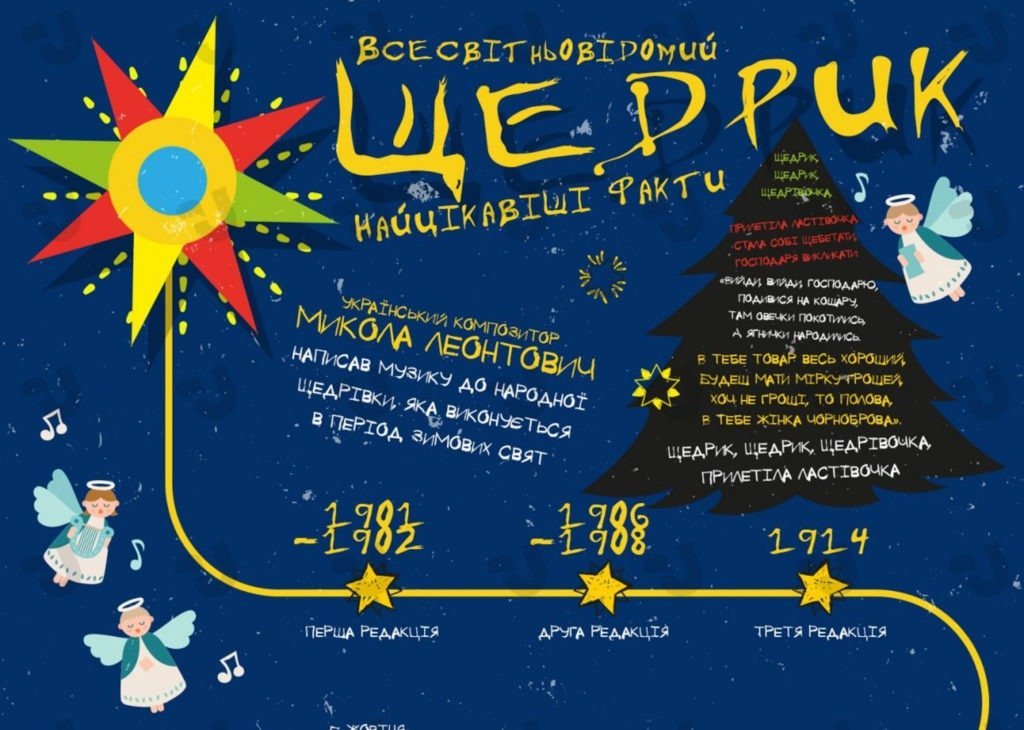 ВСЕСВІТНЬОВІДОМИЙ
ЩЕДРИК
НАЙЦІКАВІШІ ФАКТИ
ЩЕДРИК,
ЩЕДРИК,
ЩЕДРІВОЧКА,
ПРИЛЕТІЛА ЛАСТІВОЧКА,
СТАЛА СОБІ ЩЕБЕТАТИ,
ГОСПОДАРЯ ВИКЛИКАТИ:
«ВИЙДИ, ВИЙДИ, ГОСПОДАРЮ,
ПОДИВИСЯ НА КОШАРУ,
ТАМ ОВЕЧКИ ПОКОТИЛИСЬ,
А ЯГНИЧКИ НАРОДИЛИСЬ.
В ТЕБЕ ТОВАР ВЕСЬ ХОРОШИЙ,
БУДЕШ МАТИ МІРКУ ГРОШЕЙ,
ХОЧ НЕ ГРОШІ, ТО ПОЛОВА,
В ТЕБЕ ЖІНКА ЧОРНОБРОВА».
ЩЕДРИК, ЩЕДРИК, ЩЕДРІВОЧКА,
ПРИЛЕТІЛА ЛАСТІВОЧКА
УКРАЇНСЬКИЙ КОМПОЗИТОР
МИКОЛА ЛЕОНТОВИЧ
НАПИСАВ МУЗИКУ ДО НАРОДНОЇ
ЩЕДРІВКИ, ЯКА ВИКОНУЄТЬСЯ
В ПЕРІОД ЗИМОВИХ СВЯТ
1901
-1902
1906
-1908
1914
ПЕРША РЕДАКЦІЯ
ДРУГА РЕДАКЦІЯ
ТРЕТЯ РЕДАКЦІЯ